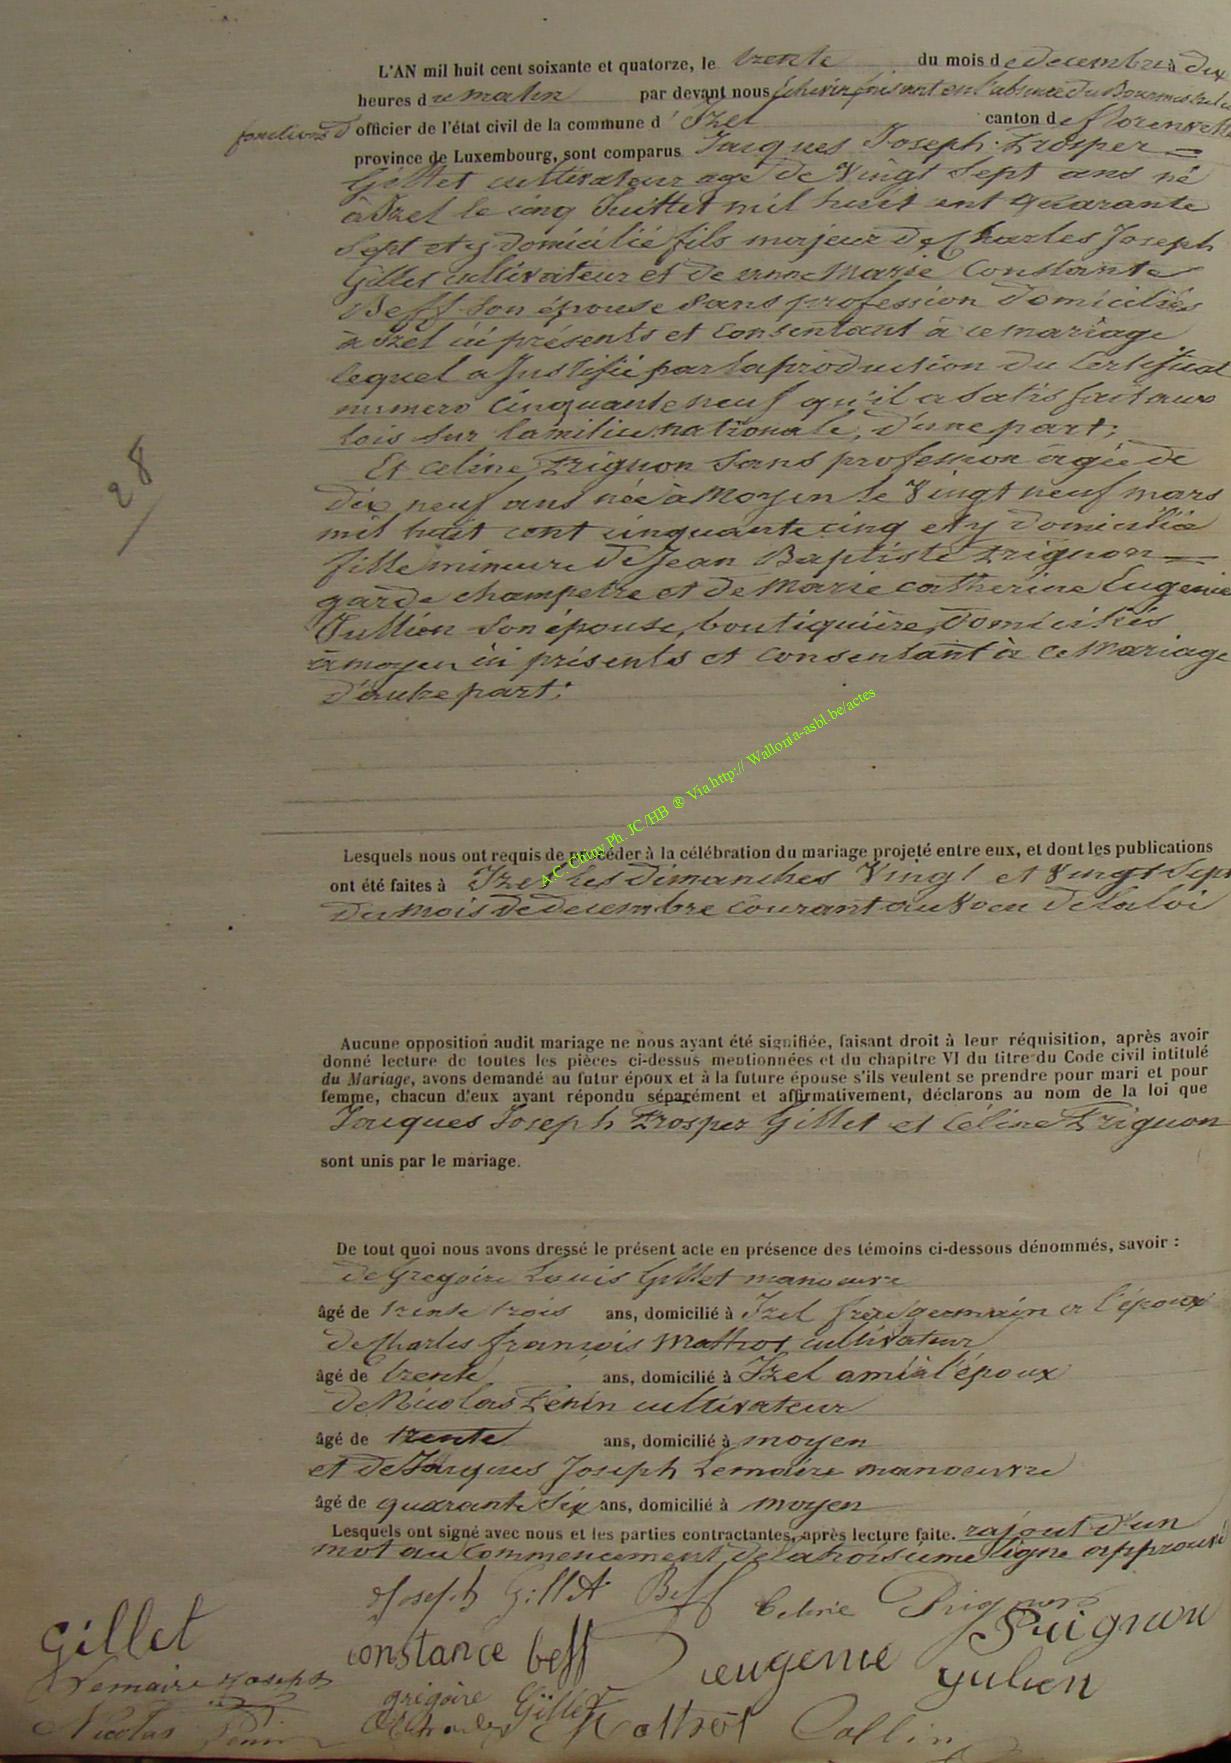 L'AN mil huit cent soixante et quatorze, le trente du mois de decembre à dix
heures du matin par devant nous Echevin faisant en l'absence du Bourmestre les
fonctions d'officier de l'état civil de la commune d'Izel canton de florenville
province de Luxembourg, sont comparus Jacques Joseph Prosper
Gillet cultivateur agé de Vingt Sept ans né
à Izel le cinq Juillet mil huit cent quarante
Sept et y domicilié fils majeur de Charles Joseph
Gillet cultivateur et de anne Marie Constante
Beff son épouse sans profession domiciliés
à Izel ici présents et consentant à ce mariage
lequel a Justifié par la production du Certificat
numero Cinquante neuf qu'il a satisfait aux
lois sur la milice nationale, d'une part;
28
Et Celine Prignon Sans profession âgée de
dix neuf ans née à Moyen le Vingt neuf mars
mil huit cent cinquante cinq et y domicilié
fille mineure de Jean Baptiste Prignon
garde champetre et de Marie Catherine Eugenie
Jullien son épouse, boutiquière, domiciliés
à moyen ici présents et consentant à ce Mariage
d'autre part;
A.C. Chiny Ph. JC/HB ® Via http:// Wallonia-asbl.be/actes
Lesquels nous ont requis de procéder à la célébration du mariage projeté entre eux, et dont les publications
ont été faites à Izel les dimanches Vingt et Vingt Sept
du mois de decembre courant au Voeu de la loi
Aucune opposition audit mariage ne nous ayant été signifiée, faisant droit à leur réquisition, après avoir
donné lecture de toutes les pièces ci-dessus mentionnées et du chapitre VI du titre du Code civil intitulé
du Mariage, avons demandé au futur époux et à la future épouse s'ils veulent se prendre pour mari et pour
femme, chacun d'eux ayant répondu séparément et affirmativement, déclarons au nom de la loi que
Jacques Joseph Prosper Gillet et Céline Prignon
sont unis par le mariage.
De tout quoi nous avons dressé le présent acte en présence des témoins ci-dessous dénommés, savoir :
de Gregoire Louis Gillet manoeuvre
âgé de trente trois ans, domicilié à Izel frère germain à l'époux
de Charles françois Mathot cultivateur
âgé de trente ans, domicilié à Izel ami à l'époux
de Nicolas Penin cultivateur
âgé de trente ans, domicilié à moyen
et de Jacques Joseph Lemaire manoeuvre
âgé de quarante Six ans, domicilié à moyen
Lesquels ont signé avec nous et les parties contractantes, après lecture faite. rajout d'un
mot au commencement de la troisième ligne approuvé
Joseph Gillet Beff Celinie Prignon
Gillet constance beff eugenie Prignon
Lemaire Joseph julien
grégoire Gillet
Nicolas Penin Charles Mathot Collin